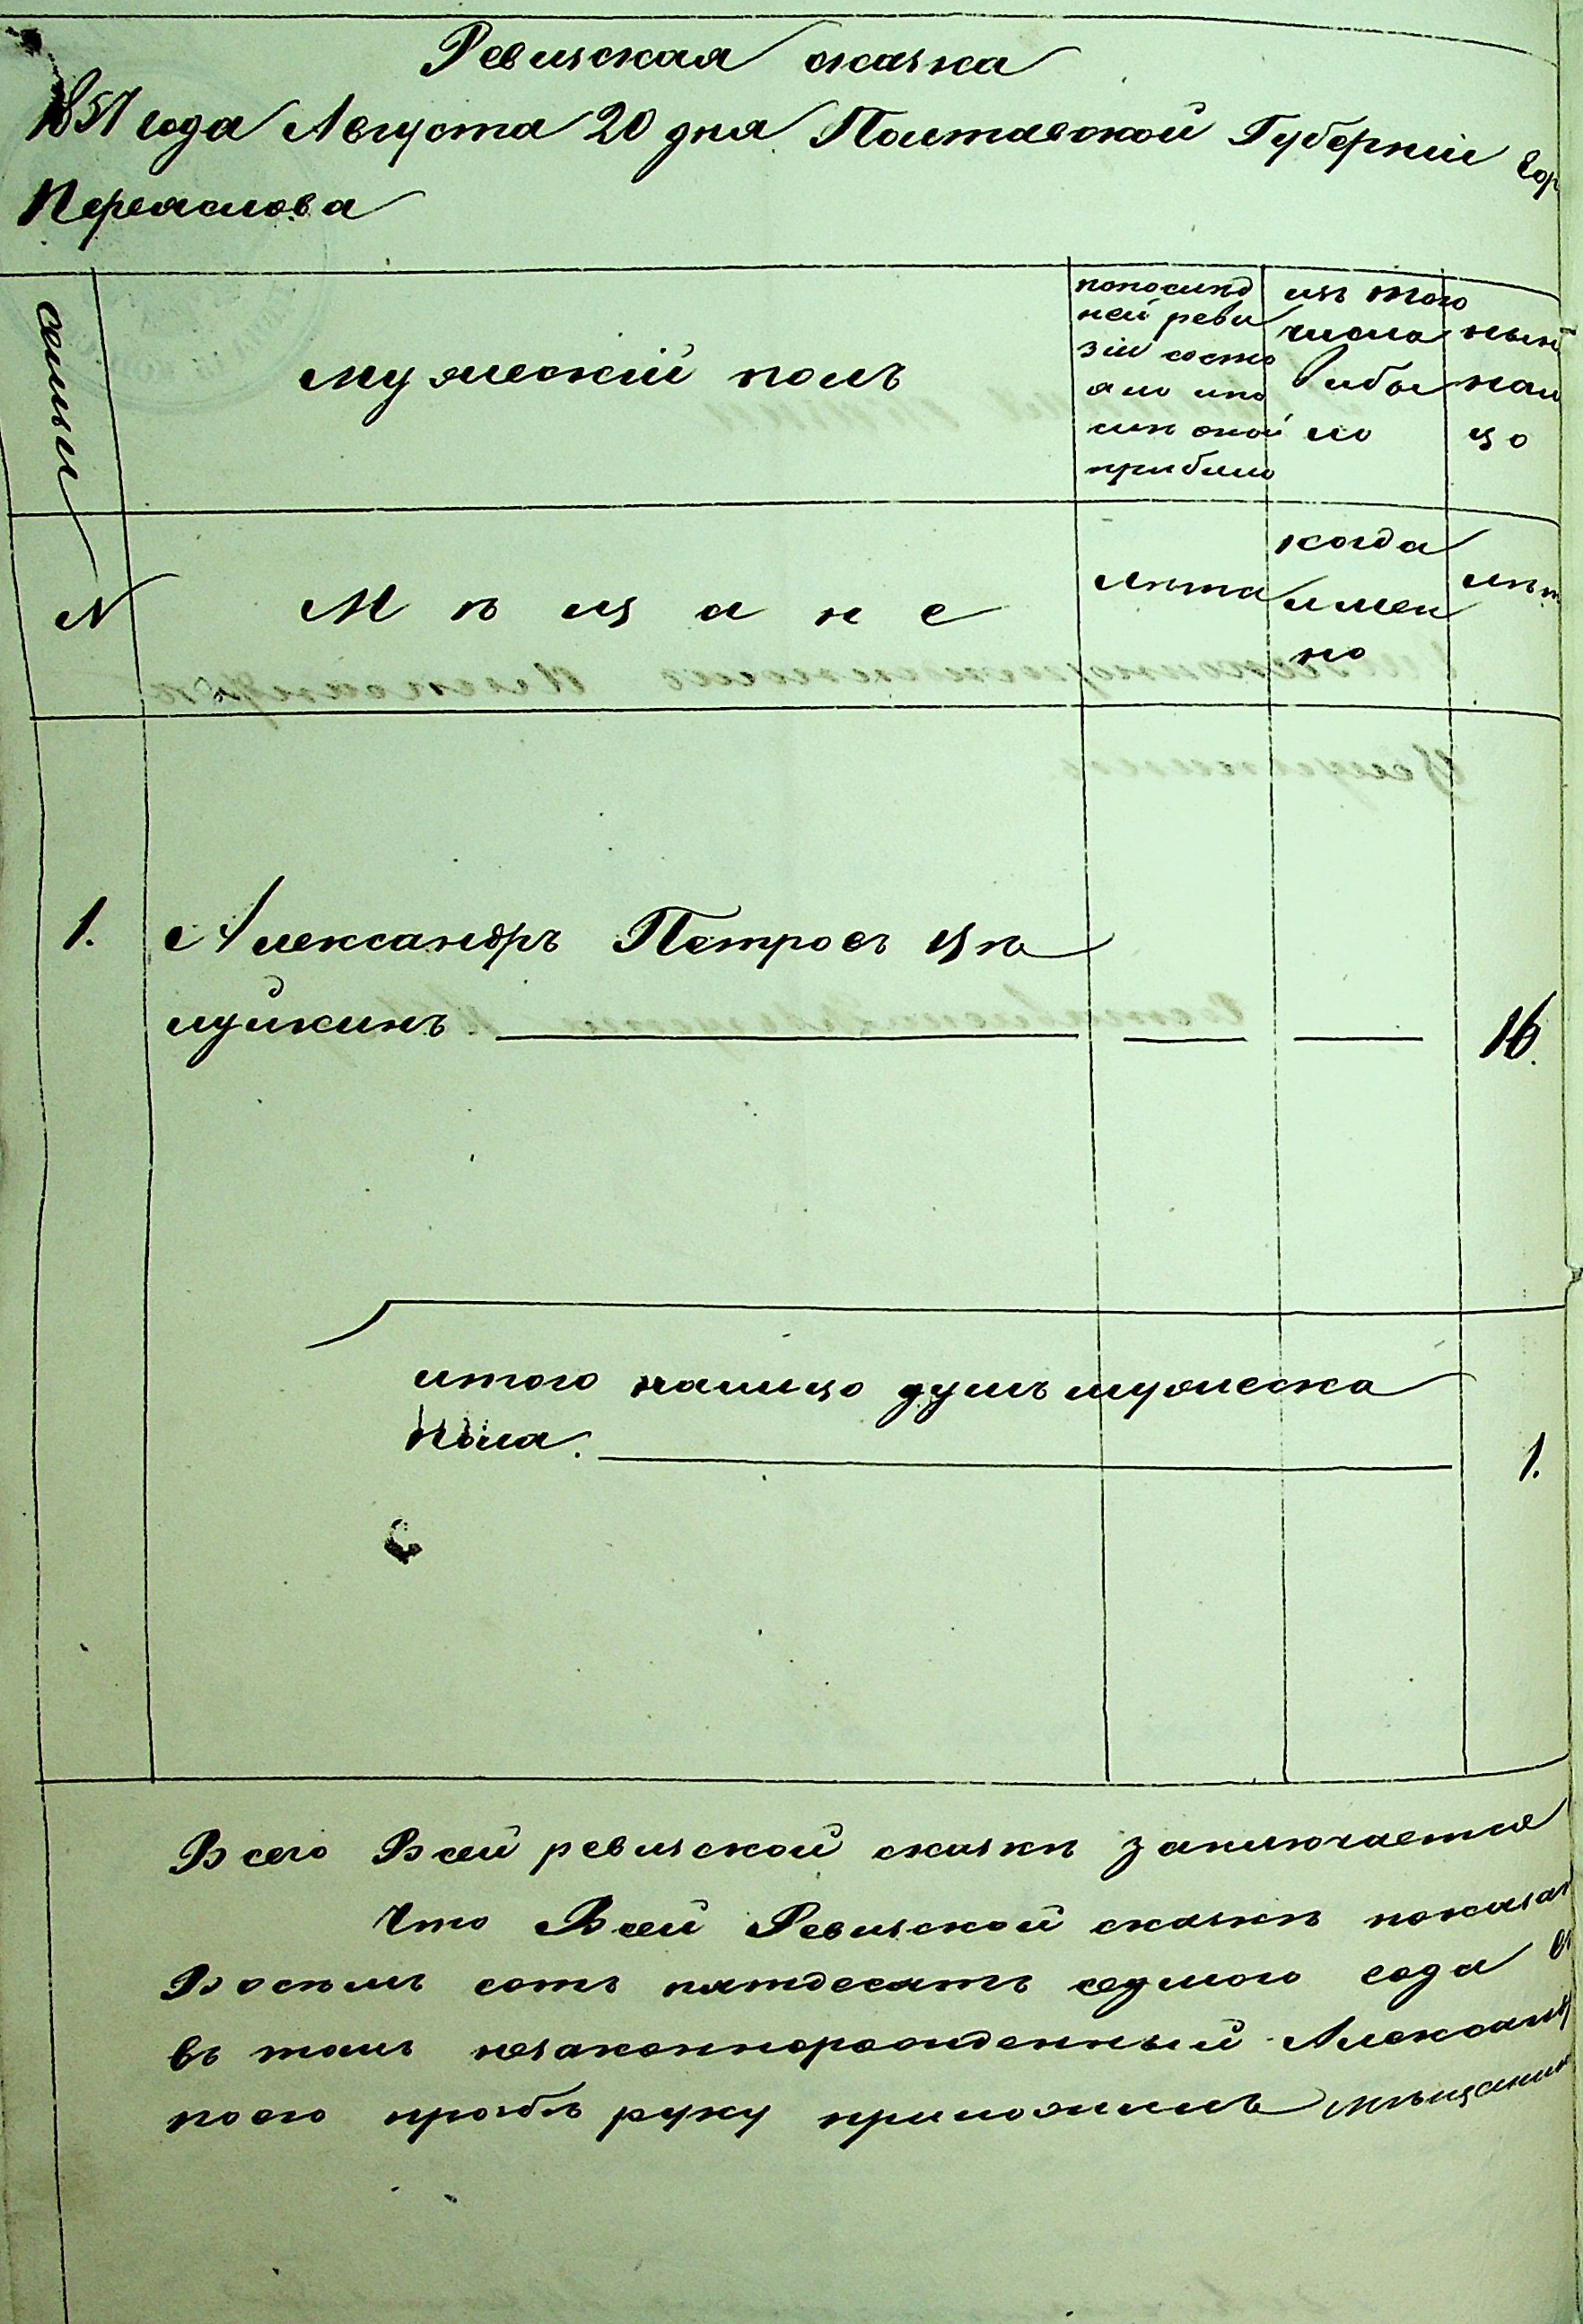 Ревизская сказка
1857 года Августа 20 дня Полтавской Губерніи гор
Переяслова
семьи
мужескій полъ
попослѣд
ней реви
зіи состо
яло ипо
слѣ оной
прибыло
изъ того
числа
выбы
ло
нынѣ
нали
цо
N
Мѣщане
лѣта
когда
имен
но
лѣт
1.
Александръ Петровъ Цѣ
луйкинъ
16.
итого налицо душъ мужеска
пола.
1.
Всего Всей ревизской сказкѣ заключается
Что Всей Ревизской сказкѣ показан
Восемь сотъ пятдесятъ седмого года
въ томъ незаконнорожденный Александ
поего прозбѣ руку приложилъ мѣщанин